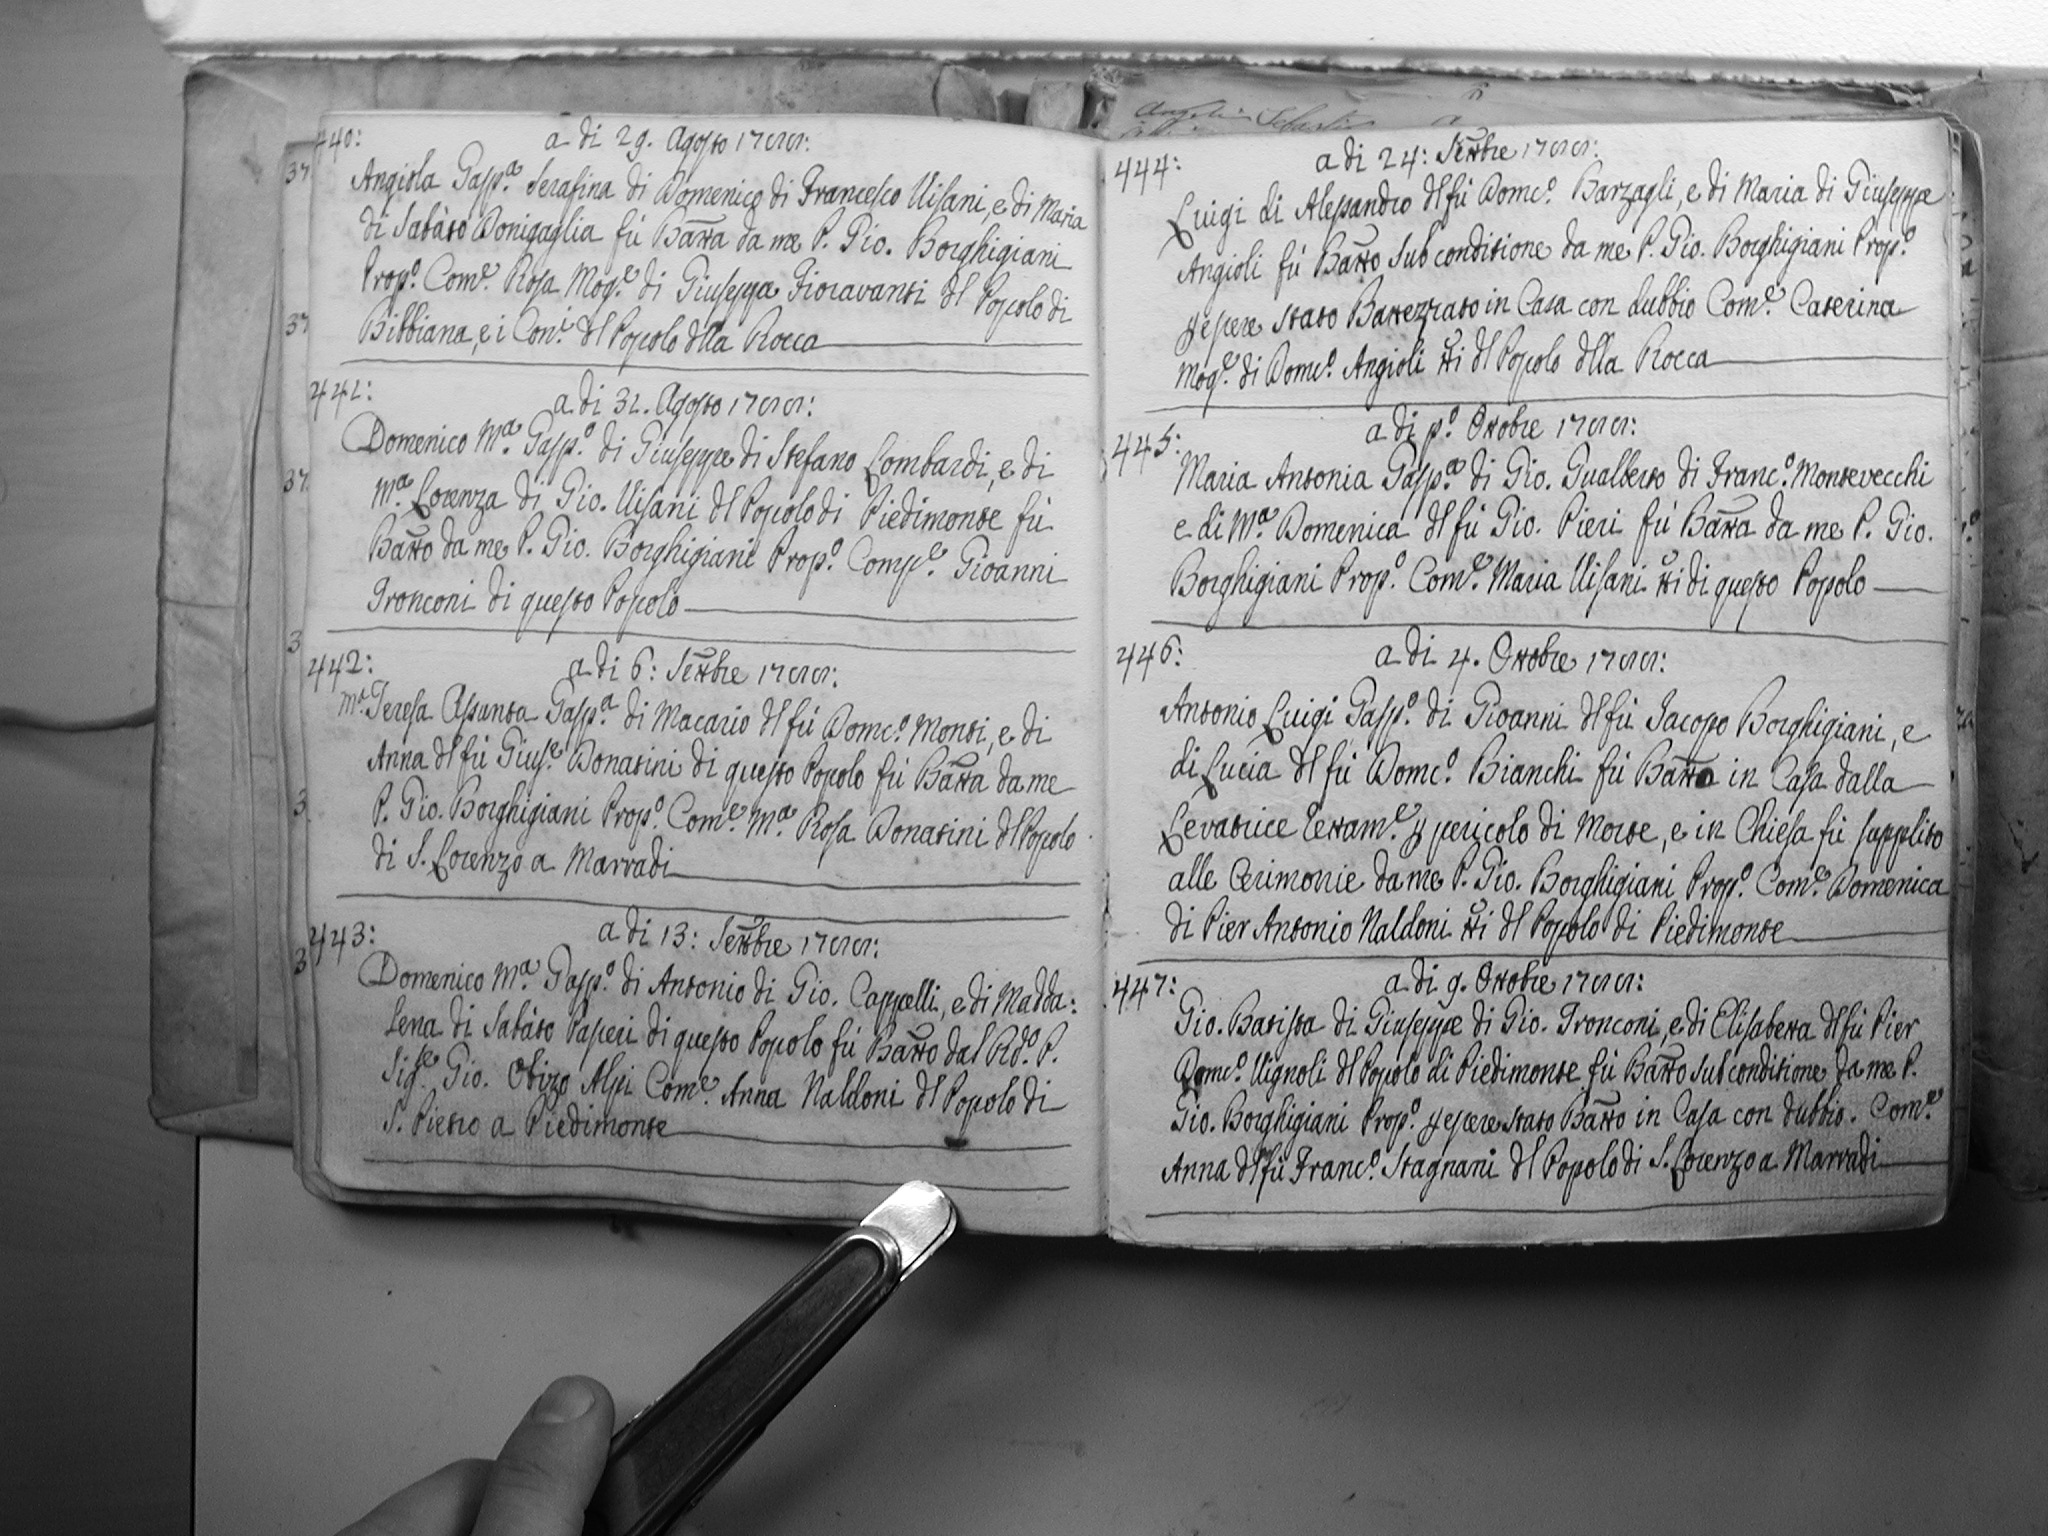 440:
a di 29. Agosto 1755:
Angiola Gasp.ª Serafina di Domenico di Francesco Visani, e di Maria
di Sabàto Donigaglia fù Batta da me P. Gio. Borghigiani
Prop.º Com.e Rosa Mog.e di Giuseppe Fioravanti dl Popolo di
Bibbiana, e i Con.i dl Popolo dlla Rocca
441:
a di 31. Agosto 1755:
Domenico M.ª Gasp.º di Giuseppe di Stefano Lombardi, e di
M.ª Lorenza di Gio. Visani dl Popolo di Piedimonte fù
Batto da me P. Gio. Borghigiani Prop.º Comp.e Gioanni
Tronconi di questo Popolo
442:
a di 6: Settbre 1755:
M.ª Teresa Assunta Gasp.ª di Macario dl fù Dom.co Monti, e di
Anna dl fù Gius.e Donatini di questo Popolo fù Batta da me
P. Gio. Borghigiani Prop.º Com.e M.ª Rosa Donatini dl Popolo
di S. Lorenzo a Marradi
443:
a di 13: Settbre 1755:
Domenico M.ª Gasp.º di Antonio di Gio. Cappelli, e di Madda:
lena di Sabàto Paperi di questo Popolo fù Batto dal Rd.º P.
Sig.e Gio. Obizo Alpi Com.e Anna Naldoni dl Popolo di
S. Pietro a Piedimonte
444:
a di 24: Settbre 1755:
Luigi di Alessandro dl fù Dom.co Barzagli, e di Maria di Giuseppe
Angioli fù Batto sub conditione da me P. Gio. Borghigiani Prop.º
p essere stato Battezzato in Casa con dubbio Com.e Caterina
Mog.e di Dom.co Angioli tti dl Popolo dlla Rocca
445:
a di p.º Ottobre 1755:
Maria Antonia Gasp.ª di Gio. Gualberto di Franc.º Montevecchi
e di M.ª Domenica dl fù Gio. Pieri fù Batta da me P. Gio.
Borghigiani Prop.º Com.e Maria Visani tti di questo Popolo
446:
a di 4. Ottobre 1755:
Antonio Luigi Gasp.º di Gioanni dl fù Jacopo Borghigiani, e
di Lucia dl fù Dom.co Bianchi fù Batto in Casa dalla
Levatrice lettam.e p pericolo di Morte, e in Chiesa fù supplito
alle Cerimonie da me P. Gio. Borghigiani Prop.º Com.e Domenica
di Pier Antonio Naldoni tti dl Popolo di Piedimonte
447:
a di 9. Ottobre 1755:
Gio. Batista di Giuseppe di Gio. Tronconi, e di Elisabetta dl fù Pier
Dom.co Vignoli dl Popolo di Piedimonte fù Batto sub conditione da me P.
Gio. Borghigiani Prop.º p essere stato Batto in Casa con dubbio. Com.e
Anna dl fù Franc.º Stagnani dl Popolo di S. Lorenzo a Marradi